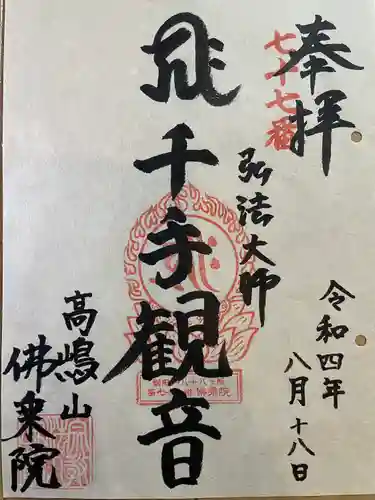 奉拝
七十七番
令和四年
八月十八日
弘法大師
千手観音
高嶋山
佛乗院